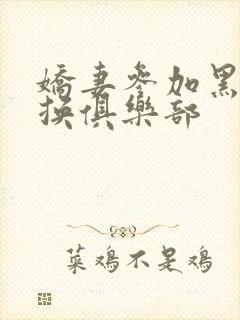 嬌妻參加黑
换俱樂部
菜鸡不是鸡